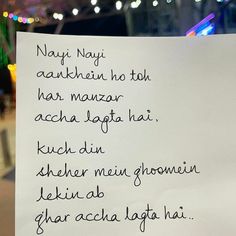 Nayi Nayi
aankhein ho toh
har manzar
accha lagta hai.
kuch din
sheher mein ghoomein
lekin ab
ghar accha lagta hai..